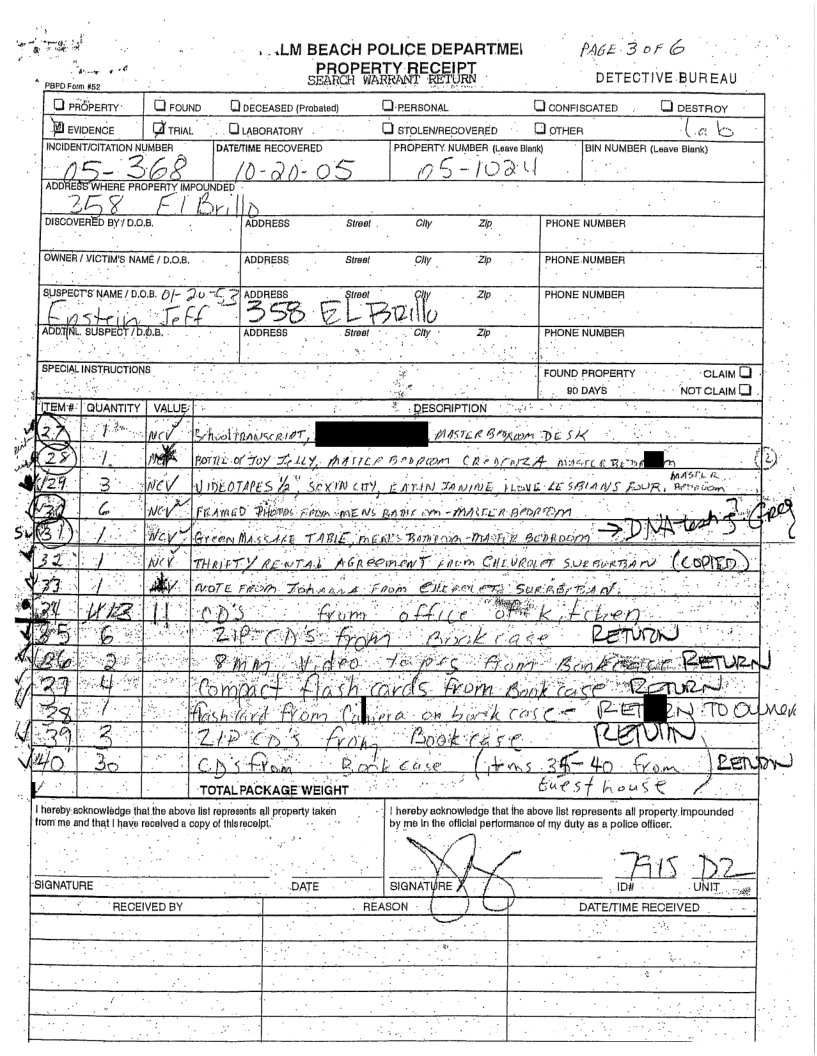 LM BEACH POLICE DEPARTME PAGE 3 OF 6
PROPERTY RECEIPT
SEARCH WARRANT RETURN DETECTIVE BUREAU
PBPD Form #52
PROPERTY FOUND DECEASED (Probated) PERSONAL CONFISCATED DESTROY
EVIDENCE TRIAL LABORATORY STOLEN/RECOVERED OTHER Lab
INCIDENT/CITATION NUMBER DATE/TIME RECOVERED PROPERTY NUMBER (Leave Blank) BIN NUMBER (Leave Blank)
05-368 10-20-05 05-1024
ADDRESS WHERE PROPERTY IMPOUNDED
358 El Brillo
DISCOVERED BY / D.O.B. ADDRESS Street City Zip PHONE NUMBER
OWNER / VICTIM'S NAME / D.O.B. ADDRESS Street City Zip PHONE NUMBER
SUSPECT'S NAME / D.O.B. 01-20-53 ADDRESS Street City Zip PHONE NUMBER
Epstein Jeff 358 EL BRillo
ADDTNL. SUSPECT / D.O.B. ADDRESS Street City Zip PHONE NUMBER
SPECIAL INSTRUCTIONS FOUND PROPERTY CLAIM
90 DAYS NOT CLAIM
ITEM# QUANTITY VALUE DESCRIPTION
27 1 NCV School TRANSCRIPT, MASTER BEDROOM DESK
28 1 BOTTLE OF JOY JELLY, MASTER BEDROOM CREDENZA MASTER BEDR m (2)
29 3 NCV VIDEOTAPES 1/2", SEXIN CITY, EATIN JANINE, I LOVE LESBIANS FOUR, MASTER BEDROOM
30 6 NCV FRAMED PHOTOS FROM MENS BATHROOM-MASTER BEDROOM
31 1 NCV GREEN MASSAGE TABLE, MEN'S BATHROOM-MASTER BEDROOM → DNA tests? Greg
32 1 NCV THRIFTY RENTAL AGREEMENT FROM CHEVROLET SURBURBAN (COPIED)
33 1 NOTE FROM JOHANNA FROM CHEVROLET SURBURBAN.
34 CD'S from office of kitchen
35 6 ZIP CD'S from Bookcase RETURN
36 2 8mm Video tapes from Bookcase RETURN
37 4 Compact flash cards from Bookcase RETURN
38 1 flash card from Camera on bookcase - RET N TO OWNER
39 3 ZIP CD'S from Bookcase RETURN
40 30 CD's from Bookcase (items 35-40 from RETURN
TOTAL PACKAGE WEIGHT Guest house
I hereby acknowledge that the above list represents all property taken
from me and that I have received a copy of this receipt.
I hereby acknowledge that the above list represents all property impounded
by me in the official performance of my duty as a police officer.
7915 D2
SIGNATURE DATE SIGNATURE ID# UNIT
RECEIVED BY REASON DATE/TIME RECEIVED